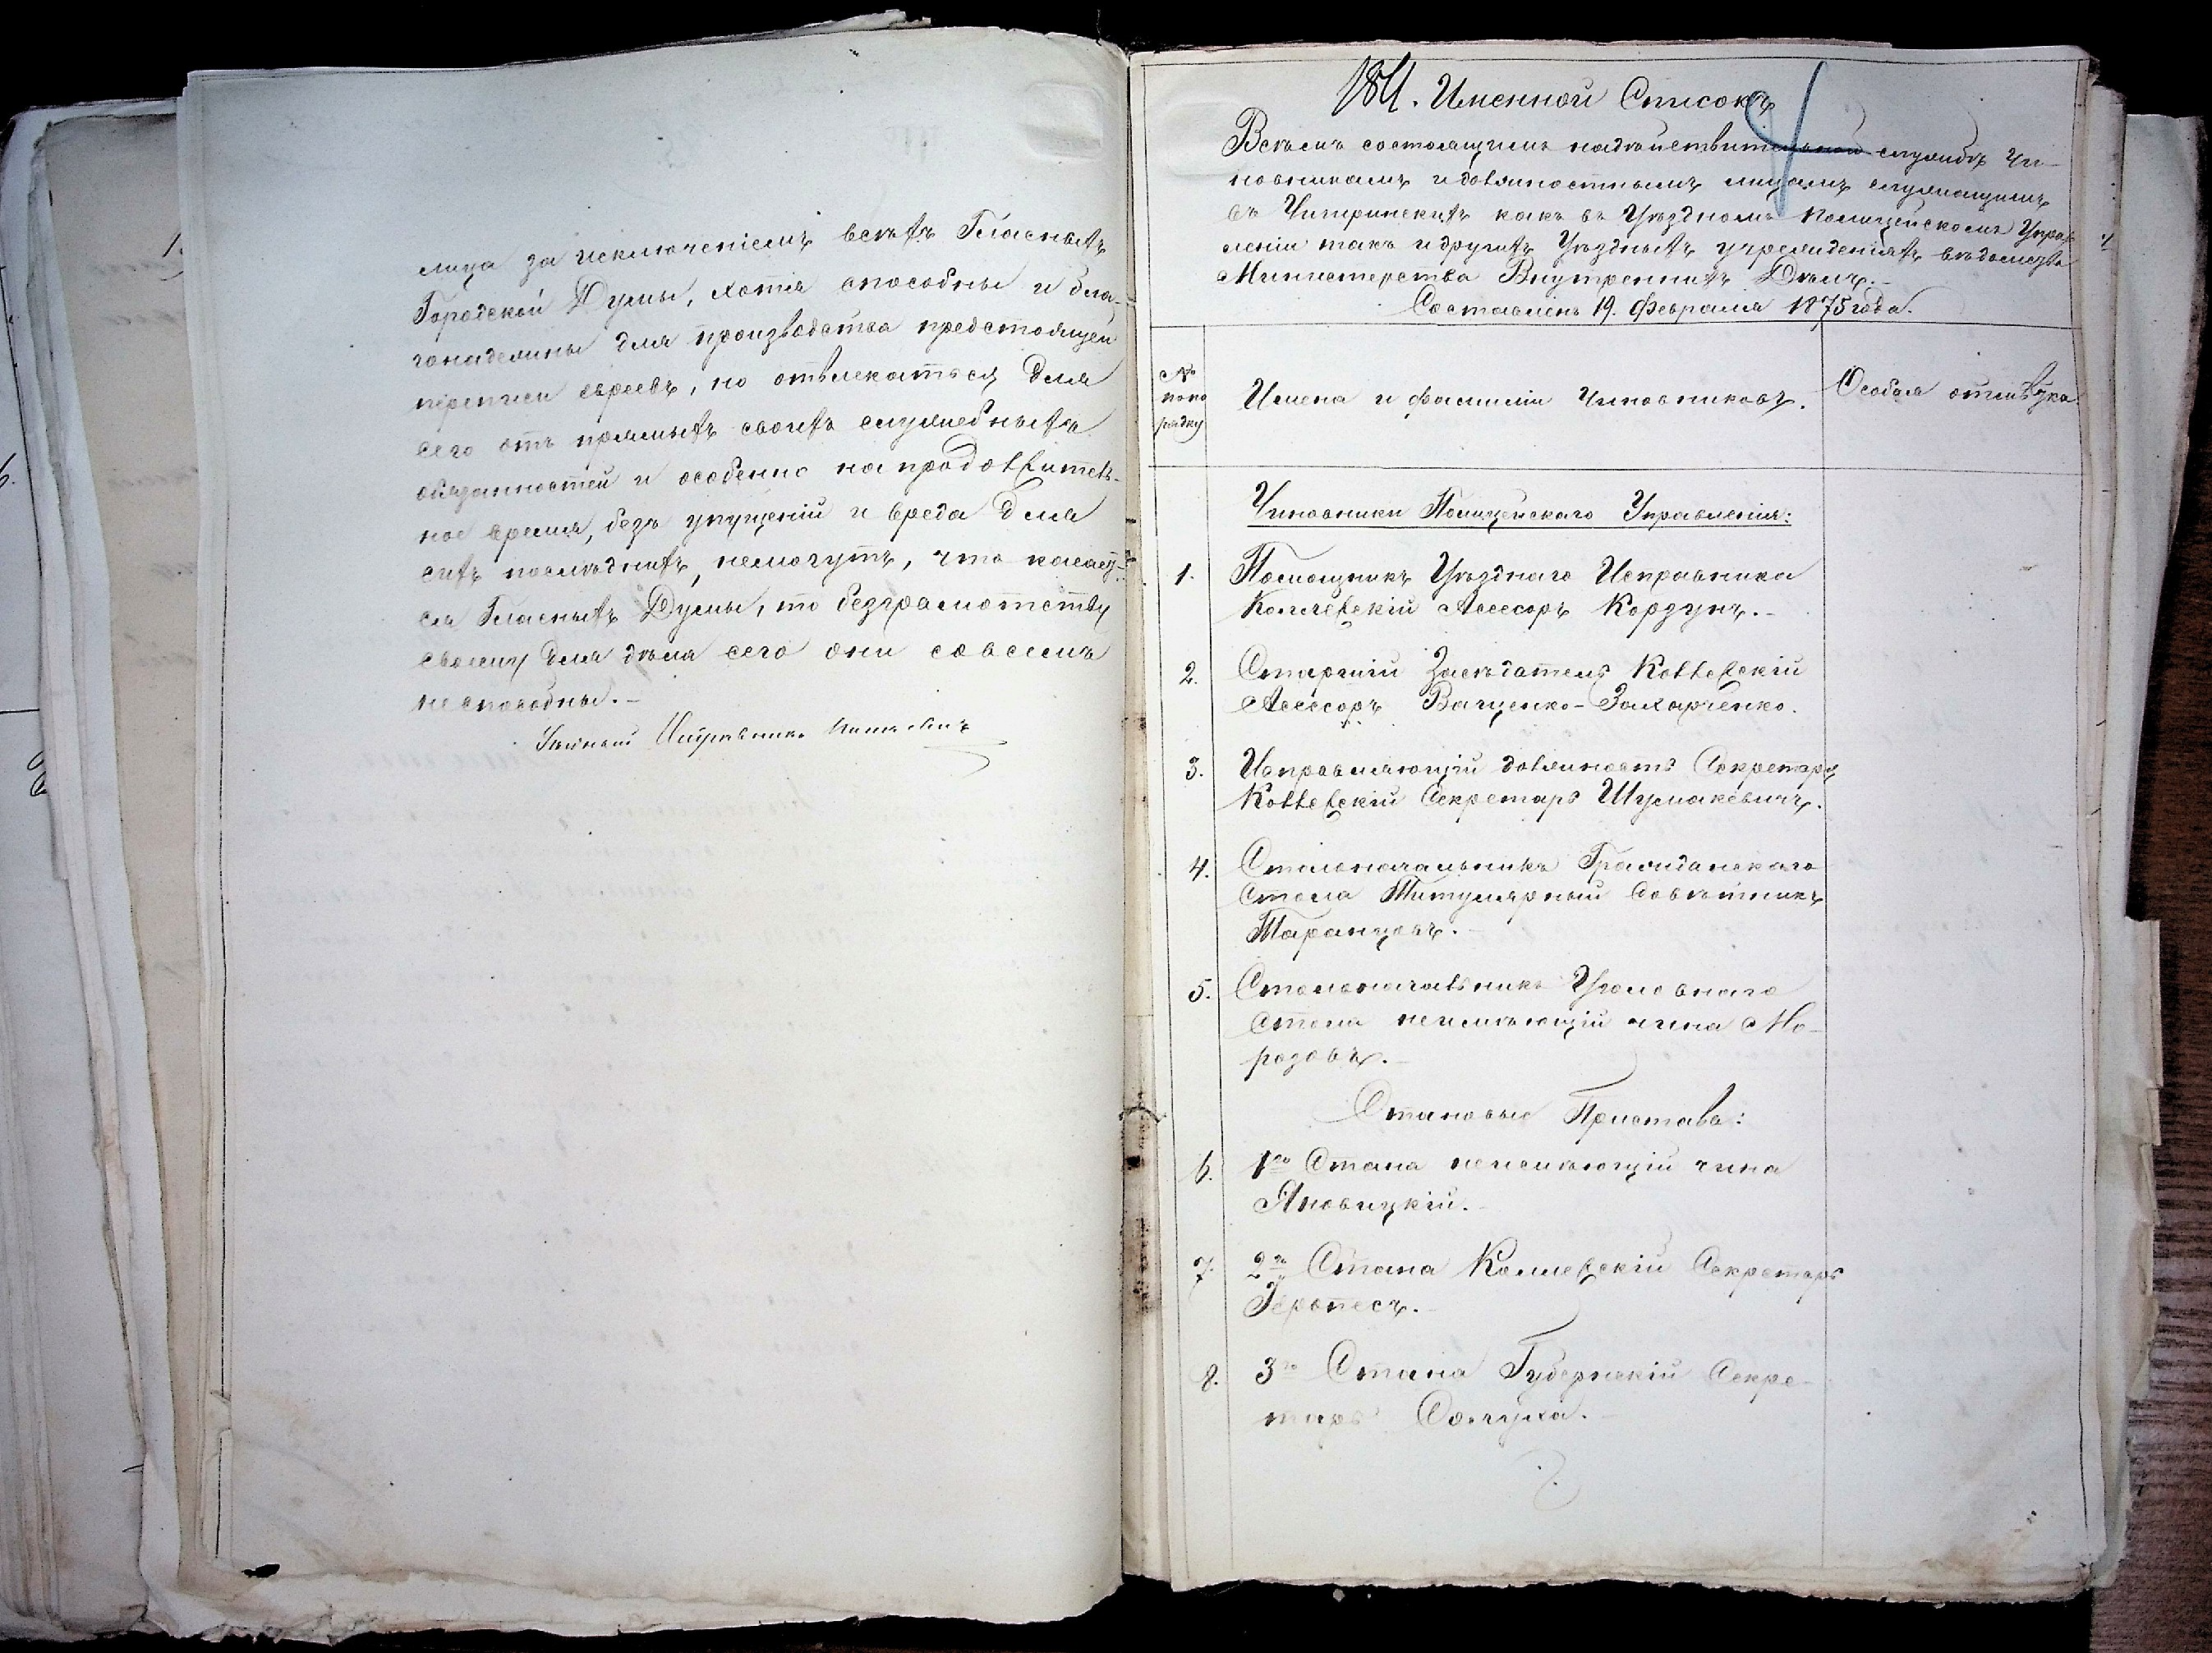 лица за исключеніемъ всѣхъ Гласныхъ
Городской Думы, хотя способны и бла-
гонадежны для производства предстоящей
переписи евреевъ, но отвлекаться для
сего отъ прямыхъ своихъ служебныхъ
обязанностей и особенно на продолжитель-
ное время, безъ упущеній и вреда для
сихъ послѣднихъ, немогутъ, что касает-
ся Гласныхъ Думы, то безграмотству
своему для дѣла сего они совсемъ
неспособны.-
Уѣздный Исправникъ
Именной Списокъ
Всѣмъ состоящимъ надѣйствительной службѣ Чи-
новникамъ идолжностнымъ лицамъ служащимъ
въ Чигиринскихъ какъ въ Уѣздномъ Полицейскомъ Управ
леніи такъ идругихъ Уѣздныхъ учрежденіяхъ вѣдомства
Министерства Внутреннихъ Дѣлъ.-
Составленъ 19. Февраля 1875 года.
№
попо
рядку
Имена и фамиліи Чиновниковъ.
Особая отмѣтка
Чиновники Полицейскаго Управленія:
1. Помощникъ Уѣзднаго Исправника
Коллежскій Асесоръ Кордунъ.-
2. Старшій Засѣдатель Коллежскій
Асесоръ Ващенко-Захарченко.
3. Исправляющій должность Секретаря
Коллежскій Секретарь Шумакевичъ.
4. Столоначальникъ Гражданскаго
Стола Титулярный Совѣтникъ
Таранцовъ.-
5. Столоначальникъ Уголовнаго
Стола неимѣющій чина Мо-
розовъ.-
Становые Пристава:
6. 1го Стана неимѣющій чина
Яновицкій.-
7. 2го Стана Коллежскій Секретарь
Геропесъ.-
8. 3го Стана Губернскій Секре-
тарь Солуха.-